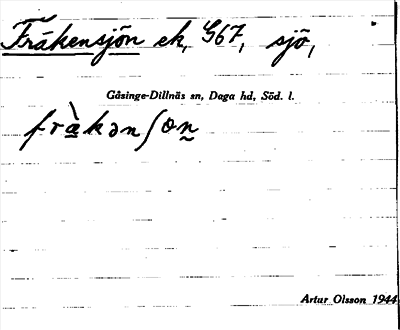 Fräkensjön ek, G67, sjö,
Gåsinge-Dillnäs sn, Daga hd, Söd. l.
fràkənʃøn
Artur Olsson 1944